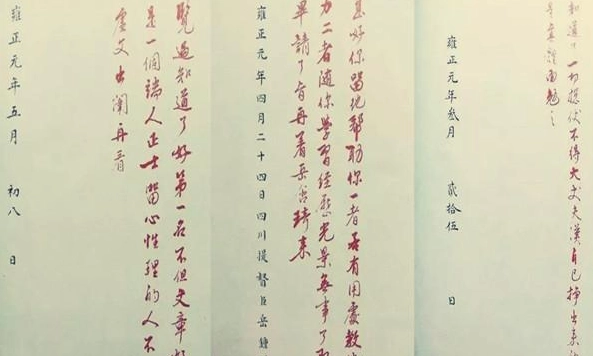 知道了一切總伏不得大丈夫漢自己掙出來
勉之
雍正元年叁月 貳拾伍 日
甚好你留他幫助你一者若有用處教
力二者隨你學習經歷光景無事了
畢請了旨再著岳含琦來
雍正元年四月二十四日四川提督臣岳鍾
覽過知道了好第一名不但文章好
是一個端人正士留心性理的人不
虛文出闈再看
雍正元年五月 初八 日